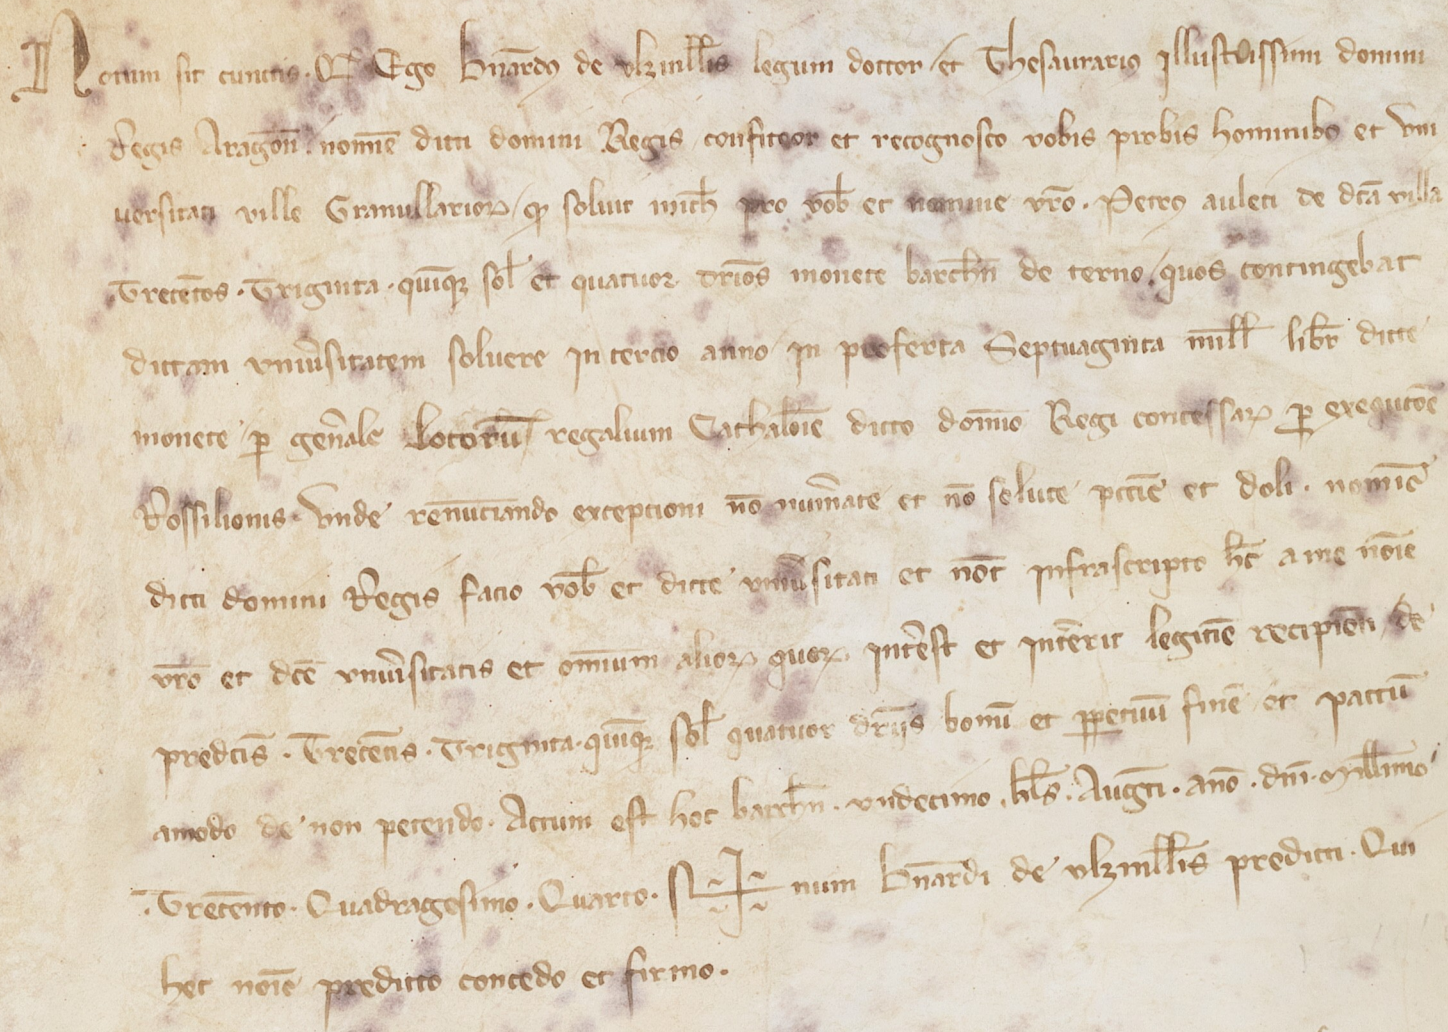 Notum sit cunctis. Qd Ego Bn̄ardus de ulzinell̄is legum doctor et Thesaurarius Illustrissimi domini
Regis Aragon̄. nomīe dicti domini Regis confiteor et recognosco vobis probis hominibus et vni
uersitati ville Granullariorꝝ / qꝫ soluit mich̄ pro vob̄ et nomine vr̄o. Petrus auleti de dc̄a villa
Trecentos. Triginta. quīqꝫ sol̄ et quatuor dn̄rios monete barch̄n̄ de terno / quos contingebat
dictam vniūsitatem soluere in tercio anno in proferta Septuaginta mill̄ libr̄ dicte
monete ꝑ gen̄ale Locorum regalium Cathalōie dicto domīo Regi concessarꝝ ꝑ exequtōe
Rossilionis. Vnde renunciando excepcioni nō num̄ate et nō solute pccīe et doli. nomīe
dicti domini Regis facio vob̄ et dicte vniūsitati et not̄ infrascripto hc̄ a me nōie
vr̄o et dc̄e vniūsitatis et omīum aliorꝝ quorꝝ intēest et inter̄it legitīe recipienti / de
predc̄is. Trecentis. Triginta. quīqꝫ sol̄ quatuor dr̄ijs bonū et ꝑpetuū finē et pactū
amodo de non petendo. Actum est hoc barch̄n̄. vndecimo. kl̄s. Augusti. anō. dn̄i. Mill̄imo
. Trecentō. Quadragesimo. Quarto. Sig✠num Bn̄ardi de ulzinell̄is predicti. Qui
hec nōie predicto concedo et firmo.